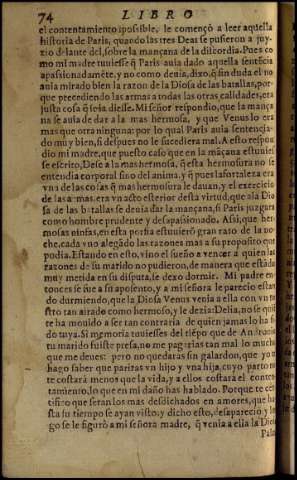 74 LIBRO
el contentamiento possible, le començò a leer aquella
historia de Paris, quando las tres Deas se pusieron a juy-
zio delante del, sobre la mançana de la discordia. Pues co
mo mi madre tuuiesse q̃ Paris auia dado aquella sentẽcia
apassionadamẽte, y no como deuia, dixo, q̃ sin duda el no
auia mirado bien la razon de la Diosa de las batallas, por-
que precediendo las armas a todas las otras calidades, era
justa cosa q̃ se la diesse. Mi señor respondio, que la mança
na se auia de dar a la mas hermosa, y que Venus lo era
mas que otra ninguna: por lo qual Paris auia sentencia-
do muy bien, si despues no le sucediera mal. A esto respõ
dio mi madre, que puesto caso que en la mãçana estuuies
se escrito, Dese a la mas hermosa, q̃ esta hermosura no se
entendia corporal sino del anima, y q̃ pues la fortaleza era
vna de las cosas q̃ mas hermosura le dauan, y el exercicio
de las armas, era vn acto esterior desta virtud, que a la Dio
sa de las batallas se deuia dar la mançana, si Paris juzgara
como hombre prudente y desapassionado. Assi, que her-
mosas ninfas, en esta porfia estuuierõ gran rato de la no-
che, cada vno alegãdo las razones mas a su proposito que
podia. Estando en esto, vino el sueño a vencer a quien las
razones de su marido no pudieron, de manera que estãdo
muy metida en su disputa, se dexo dormir. Mi padre en-
tonces se fue a su aposento, y a mi señora le parecio estan
do durmiendo, que la Diosa Venus venia a ella con vn ro
stro tan ayrado como hermoso, y le dezia: Delia, no se quiẽ
te ha mouido a ser tan contraria de quien jamas lo ha si
do tuya. Si memoria tuuiesses del tiẽpo que de
tu marido fuiste presa, no me pagarias tan mal lo mucho
que me deues: pero no quedaràs sin galardon, que yo te
hago saber que pariràs vn hijo y vna hija, cuyo parto no
te costarà menos que la vida, y a ellos costarà el conten-
tamiento, lo que en mi daño has hablado. Porque te cer-
tifico que seràn los mas desdichados en amores, que ha
sta su tiempo se ayan visto: y dicho esto, desaparecio y lue
go se le figurò a mi señora madre, q̃ venia a ella la Diosa
Pala